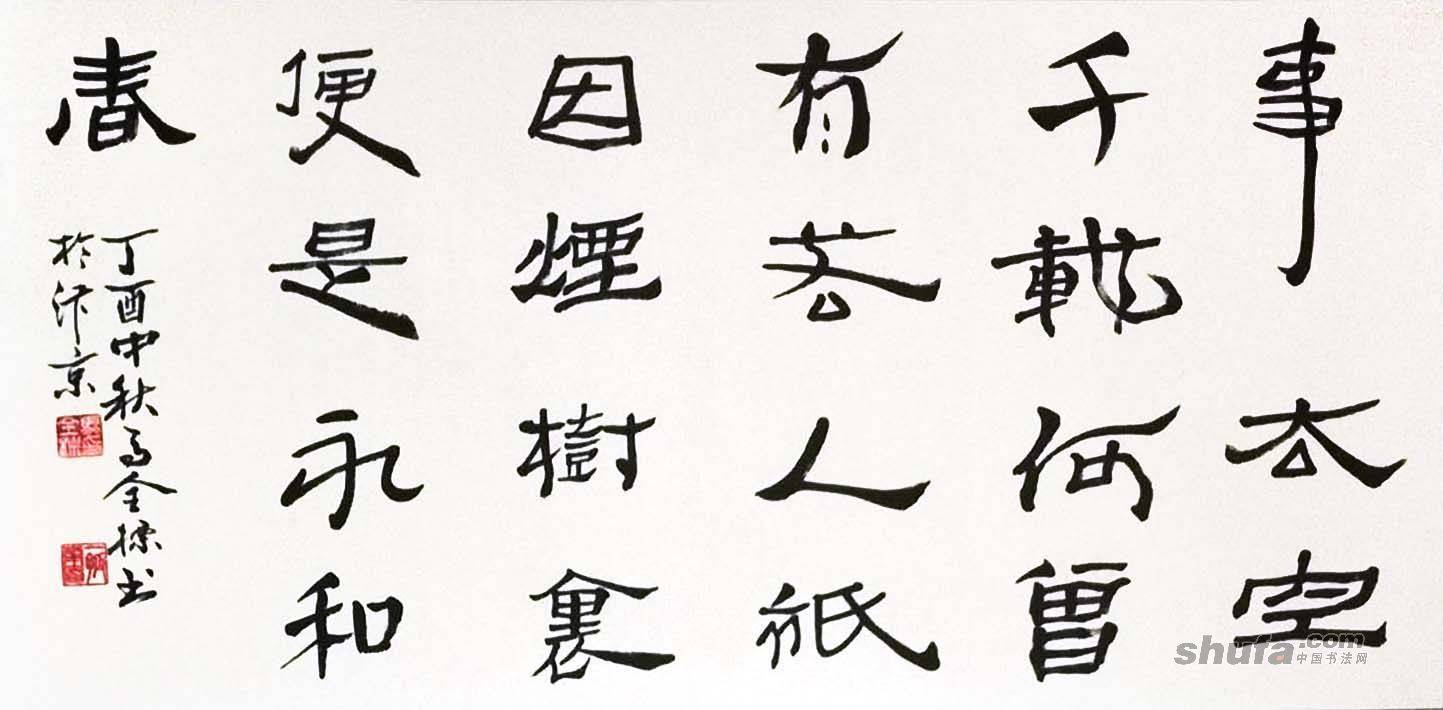 事太空
千載何曾
有若人祇
因煙樹裏
便是永和
春
丁酉中秋全书
於汴京
shufa.com
中国书法网